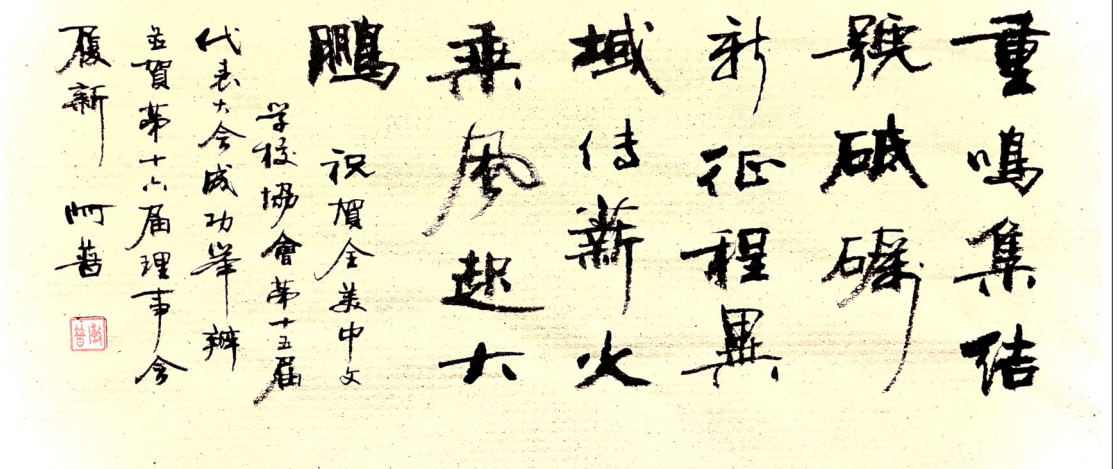 重鳴集結
號砥礪
新征程異
域傳薪火
乘風起大
鵬
祝賀全美中文
学校協會第十五届
代表大会成功舉辦
並賀第十六届理事会
履新 阿普